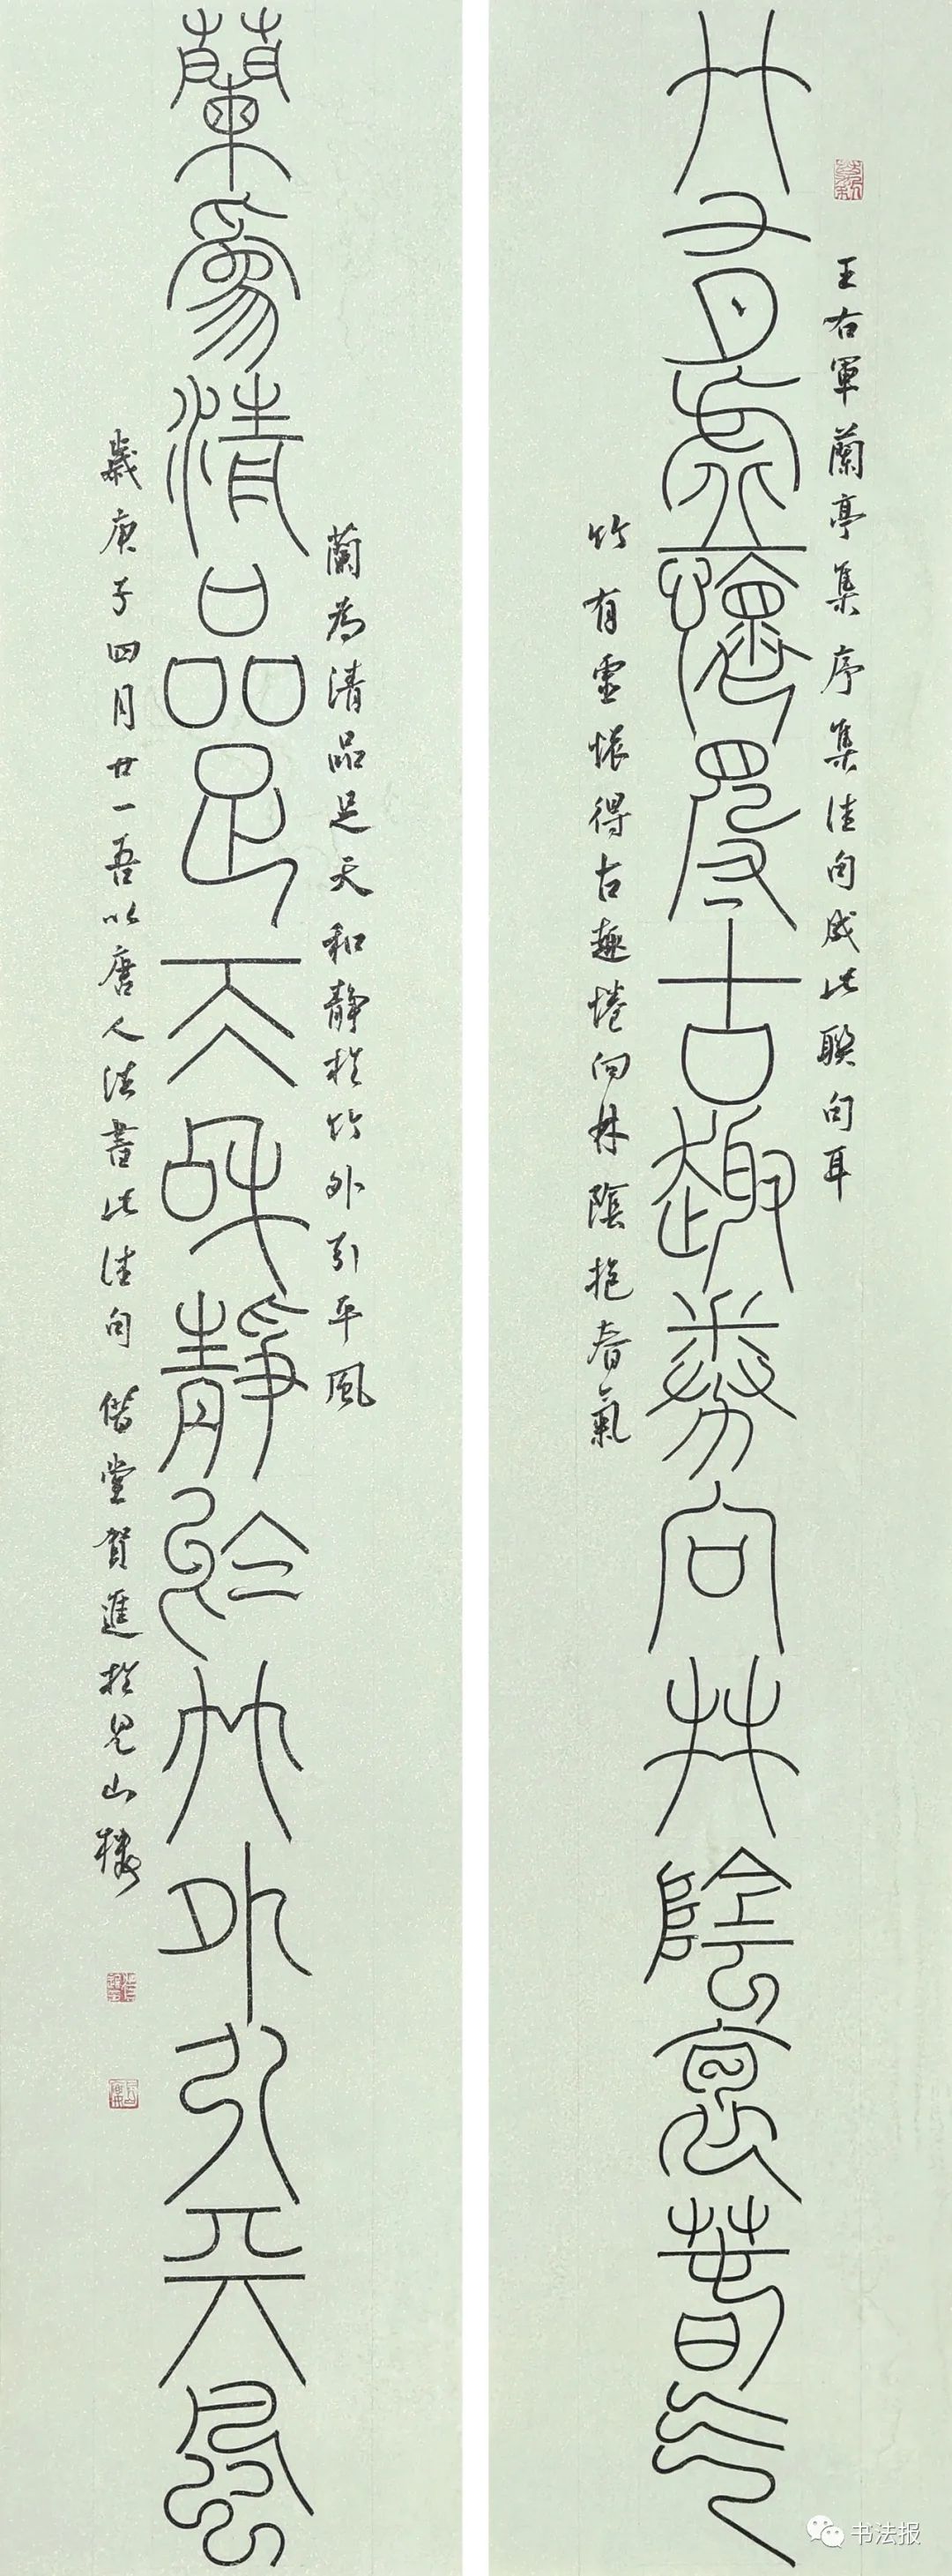 王右軍蘭亭集序集佳句成此聯句耳
竹有虛懷得古趣劵向林陰抱春气
竹有虛懷得古趣惓向林陰抱春氣
蘭為清品足天和靜於竹外引平風
蘭為清品足天和靜於竹外引平風
歲庚子四月廿一吾以唐人法書此佳句 偕堂賀進於見山樓
书法报